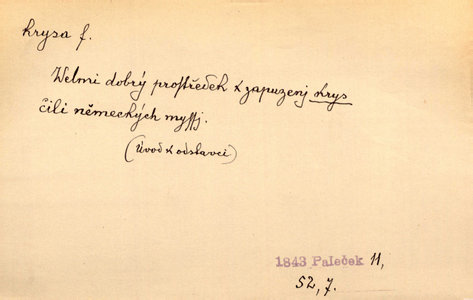 krysa f.
Welmi dobrý prostředek k zapuzenj krys
čili německých myssj.
(Úvod k odstavci)
1843 Paleček 11,
52, 7.